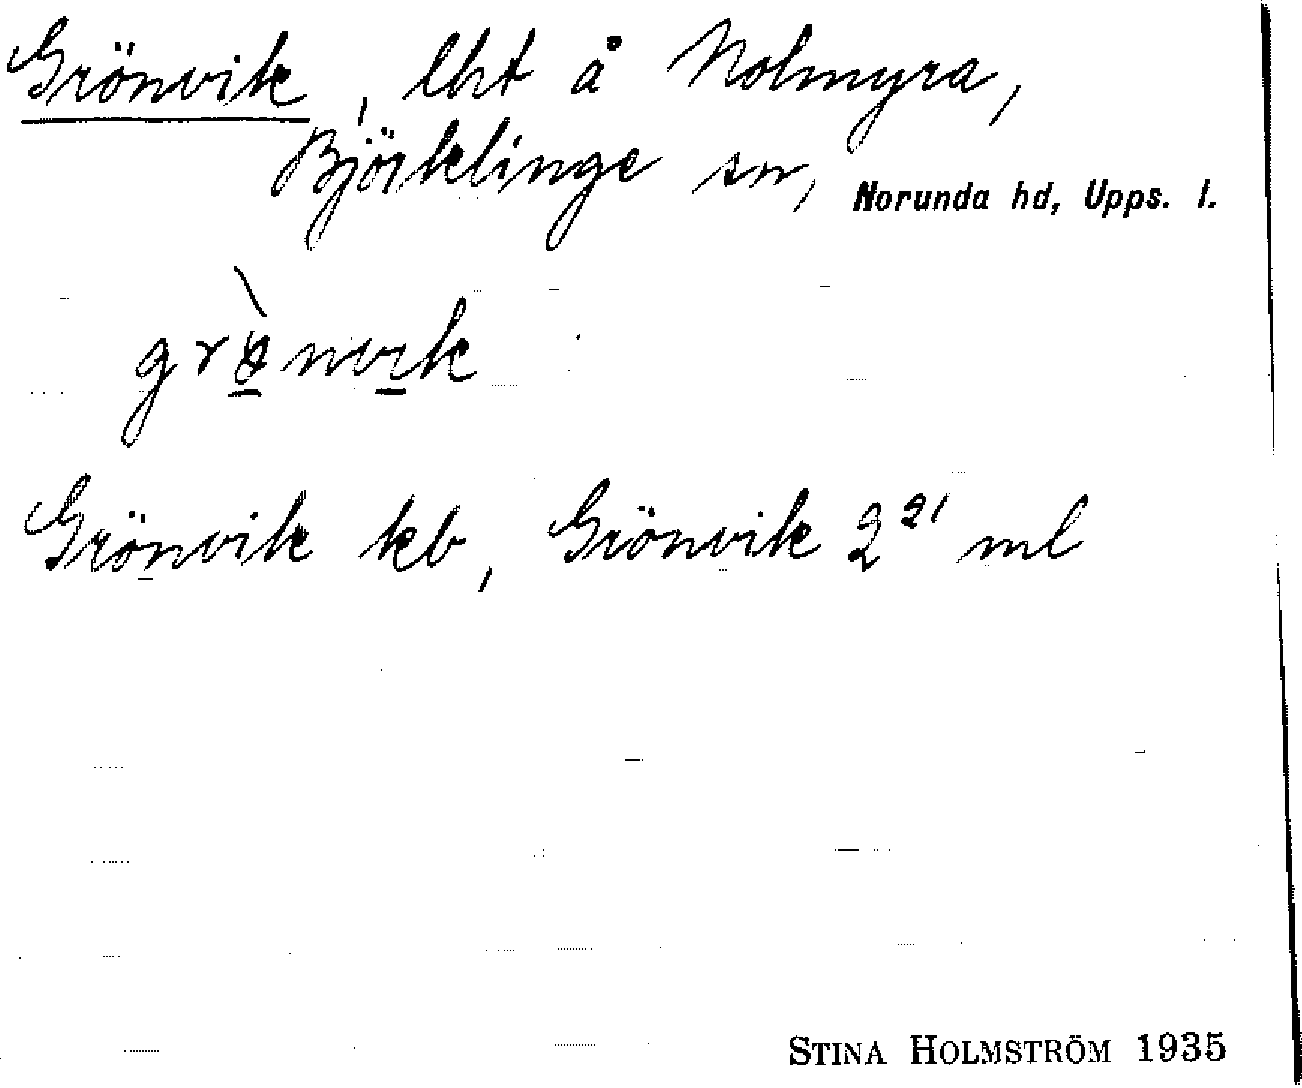 Grönvik, lht å Nolmyra,
Björklinge sn, Norunda hd, Upps. l.
grö̀nvik
Grönvik kb, Grönvik 2²¹ ml
STINA HOLMSTRÖM 1935